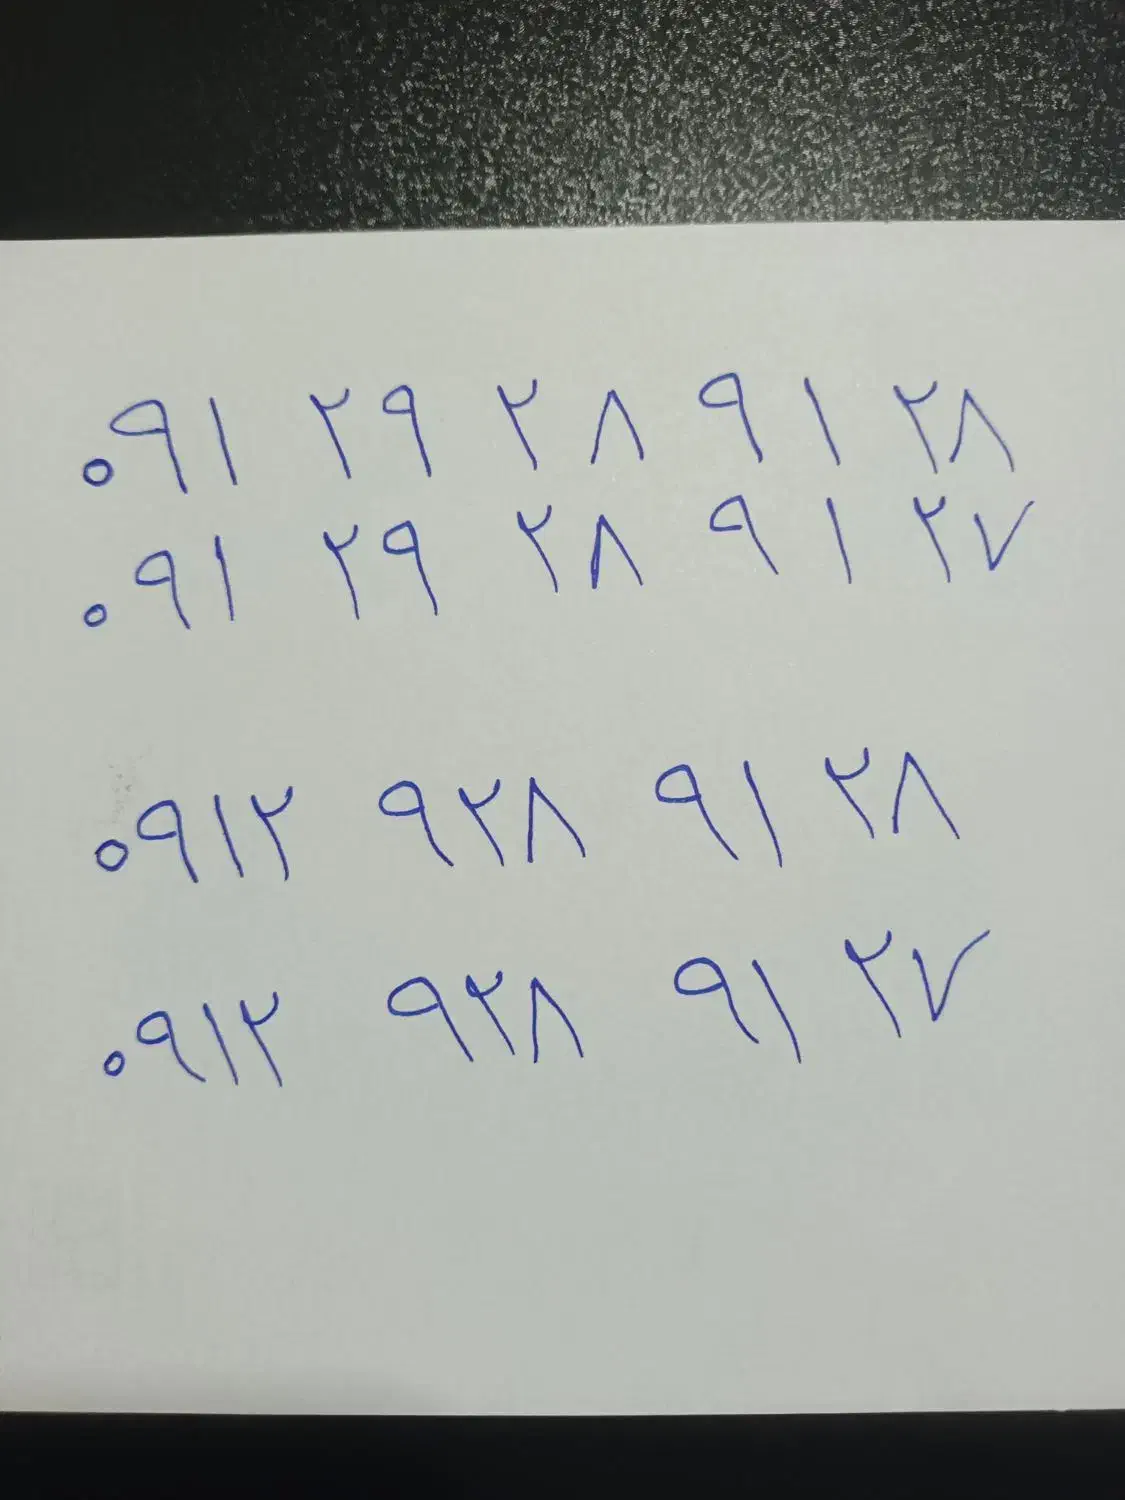 ۰۹۱ ۲۹ ۲۸ ۹۱ ۲۸
۰۹۱ ۲۹ ۲۸ ۹۱ ۲۷
۰۹۱۲ ۹۲۸ ۹۱ ۲۸
۰۹۱۲ ۹۲۸ ۹۱ ۲۷